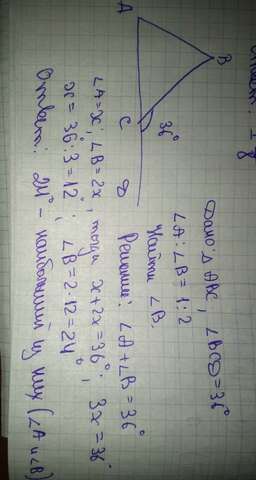 Ответ:
A
B
C
D
36°
Дано: △ABC, ∠BCD=36°
∠A:∠B=1:2
Найти ∠B.
Решение: ∠A+∠B=36°
∠A=x; ∠B=2x, тогда x+2x=36°; 3x=36°
x=36:3=12°; ∠B=2·12=24°
Ответ: 24° – наибольший из них (∠A и ∠B)